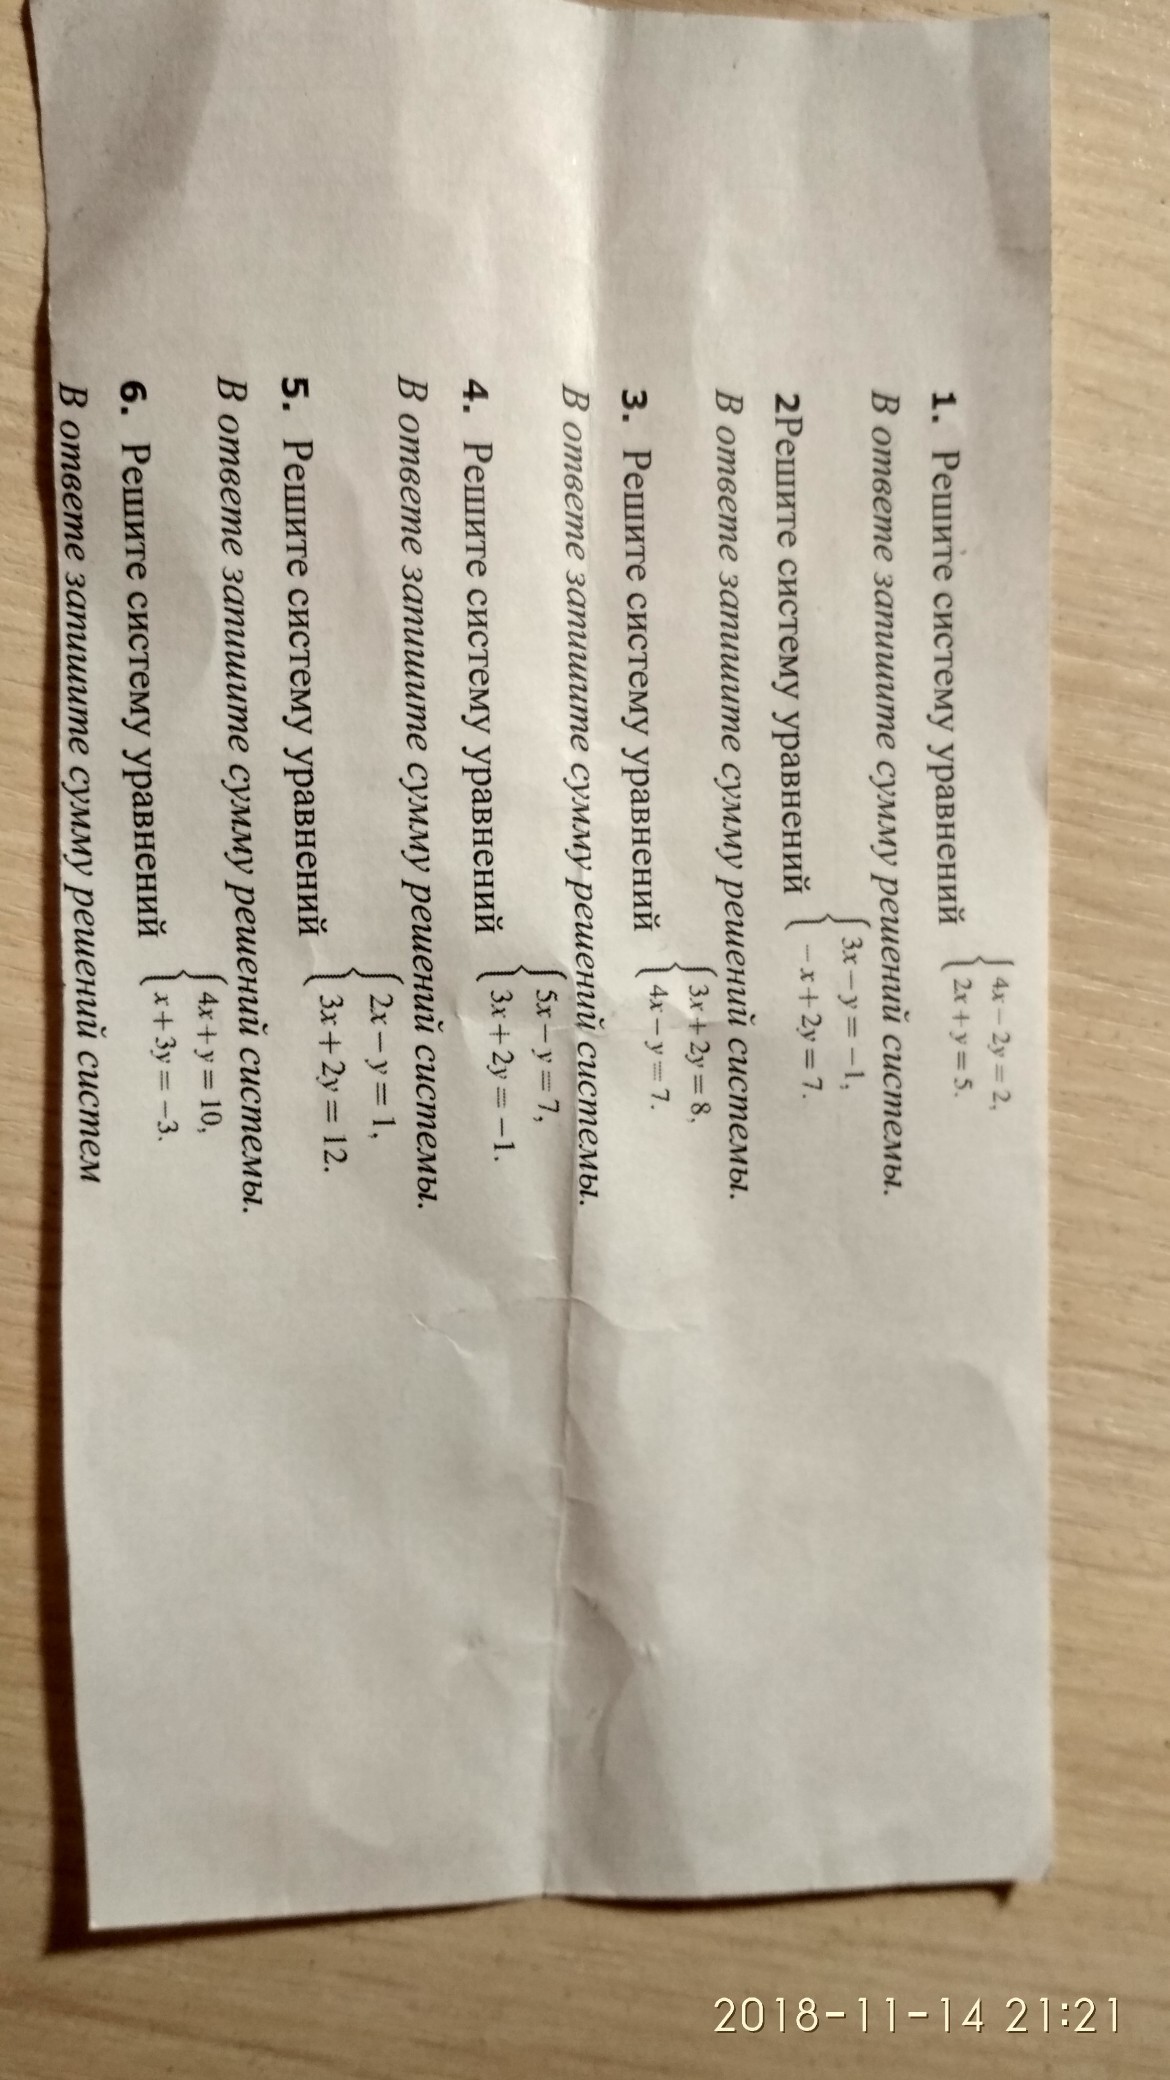 1. Решите систему уравнений { 4x − 2y = 2,
2x + y = 5.
В ответе запишите сумму решений системы.
2Решите систему уравнений { 3x − y = −1,
−x + 2y = 7.
В ответе запишите сумму решений системы.
3. Решите систему уравнений { 3x + 2y = 8,
4x − y = 7.
В ответе запишите сумму решений системы.
4. Решите систему уравнений { 5x − y = 7,
3x + 2y = −1.
В ответе запишите сумму решений системы.
5. Решите систему уравнений { 2x − y = 1,
3x + 2y = 12.
В ответе запишите сумму решений системы.
6. Решите систему уравнений { 4x + y = 10,
x + 3y = −3.
В ответе запишите сумму решений систем
2018-11-14 21:21